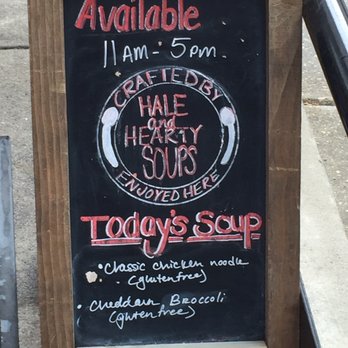 Available
11AM - 5pm
CRAFTED BY
HALE
and
HEARTY
SOUPS
ENJOYED HERE
Today's Soup
• Classic chicken noodle
(gluten free)
• Cheddar Broccoli
(gluten free)